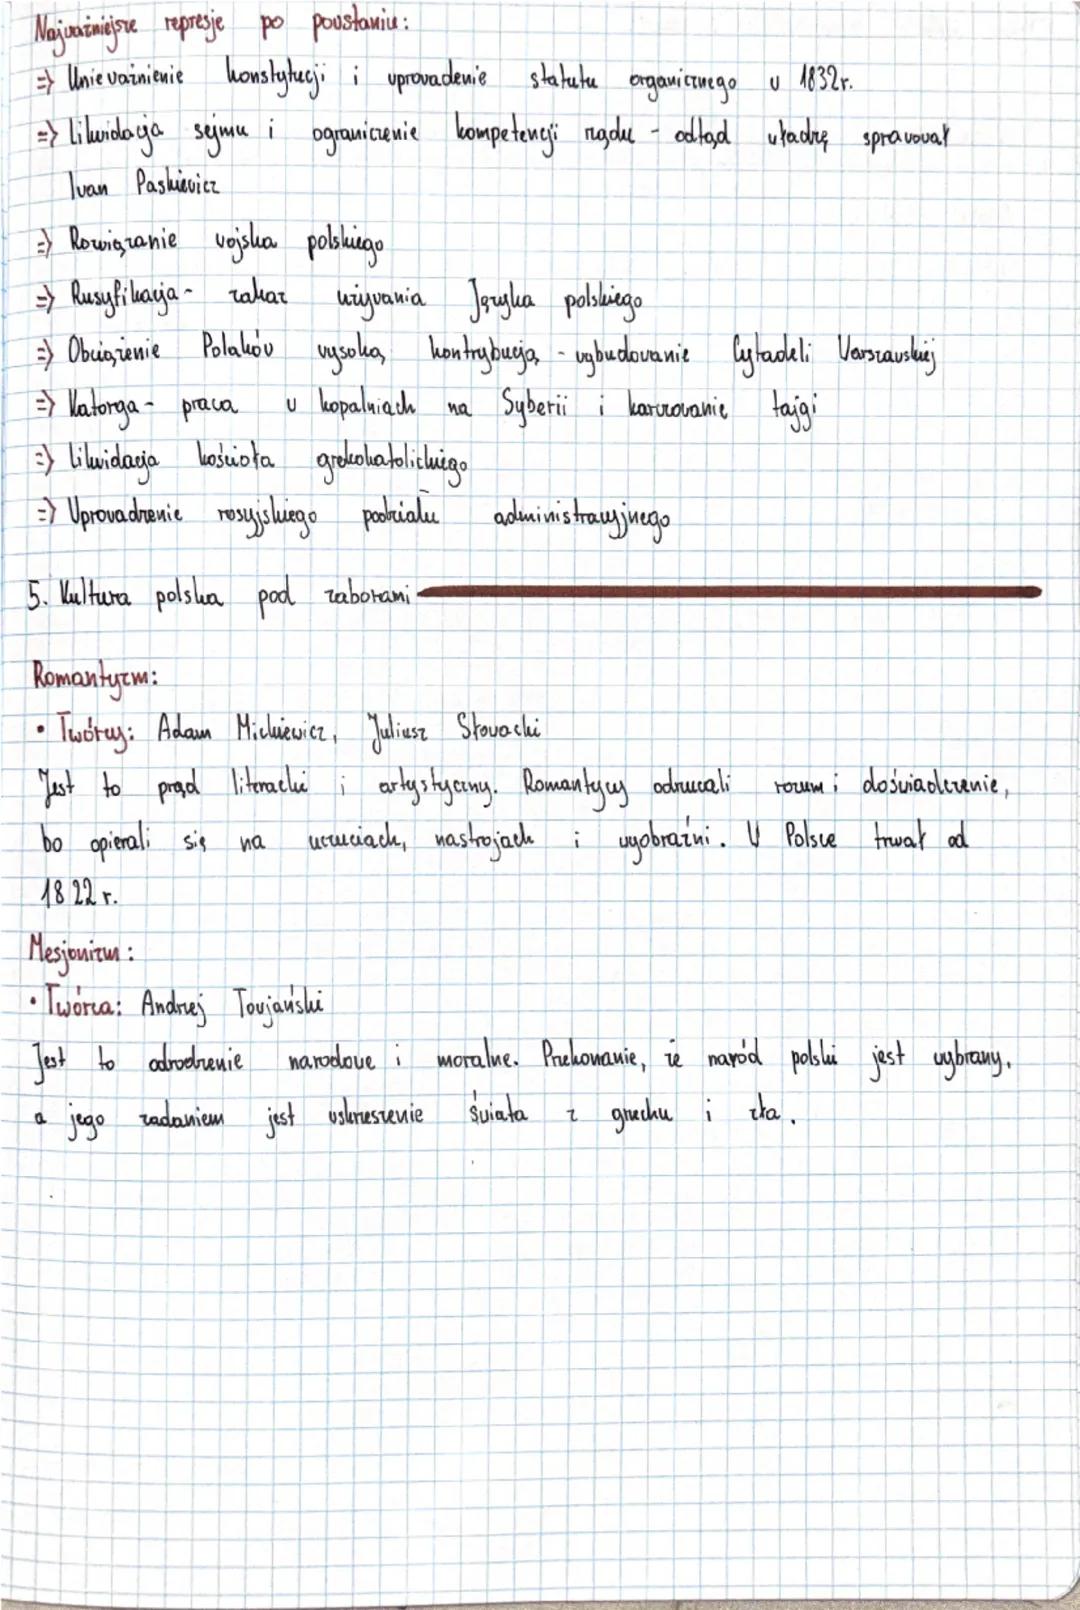 Najważniejsze represje po powstaniu:
=> Unieważnienie konstytucji i wprowadenie statutu organicznego w 1832r.
=> Likwidacja sejmu i ograniczenie kompetencji rządu - odtąd władzę sprawował
Iwan Paskiewicz
=> Rowiązanie wojska polskiego
=> Rusyfikacja - zakaz używania Języka polskiego
=> Obciążenie Polaków wysoką kontrybucją - wybudowanie Cytadeli Warszawskiej
=> Katorga - praca w kopalniach na Syberii i karczowanie tajgi
=> Likwidacja kościoła grekokatolickiego
=> Wprowadzenie rosyjskiego podziału administracyjnego
5. Kultura polska pod zaborami
Romantyzm:
• Twórcy: Adam Mickiewicz, Juliusz Słowacki
Jest to prąd literacki i artystyczny. Romantycy odrzucali rozum i doświadczenie,
bo opierali się na uczuciach, nastrojach i wyobraźni. W Polsce trwał od
1822 r.
Mesjonizm:
• Twórca: Andrzej Towjański
Jest to odrodzenie narodowe i moralne. Przekonanie, że naród polski jest wybrany,
a jego zadaniem jest wskrzeszenie świata z grzechu i zła.